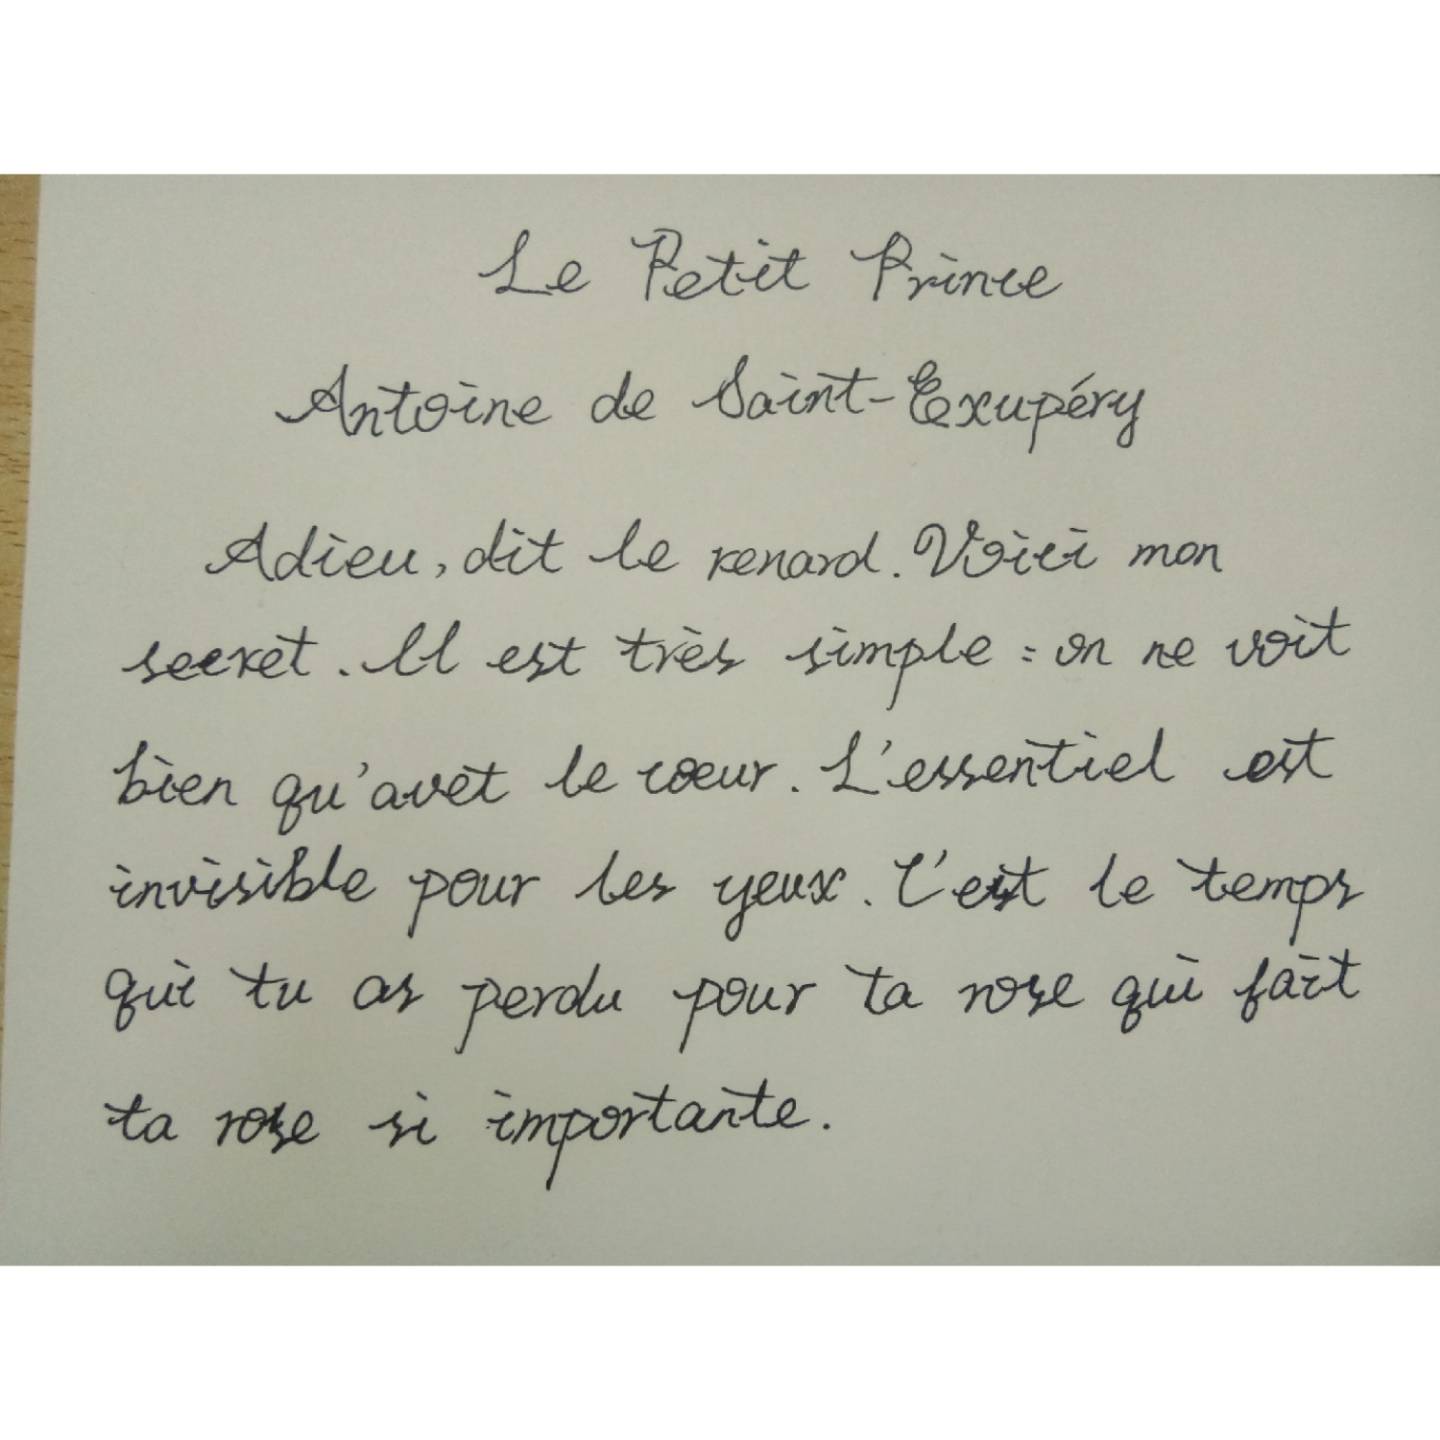 Le Petit Prince
Antoine de Saint-Exupéry
Adieu, dit le renard. Voici mon
secret. Il est très simple : on ne voit
bien qu'avet le cœur. L'essentiel est
invisible pour les yeux. C'est le temps
qui tu as perdu pour ta rose qui fait
ta rose si importante.